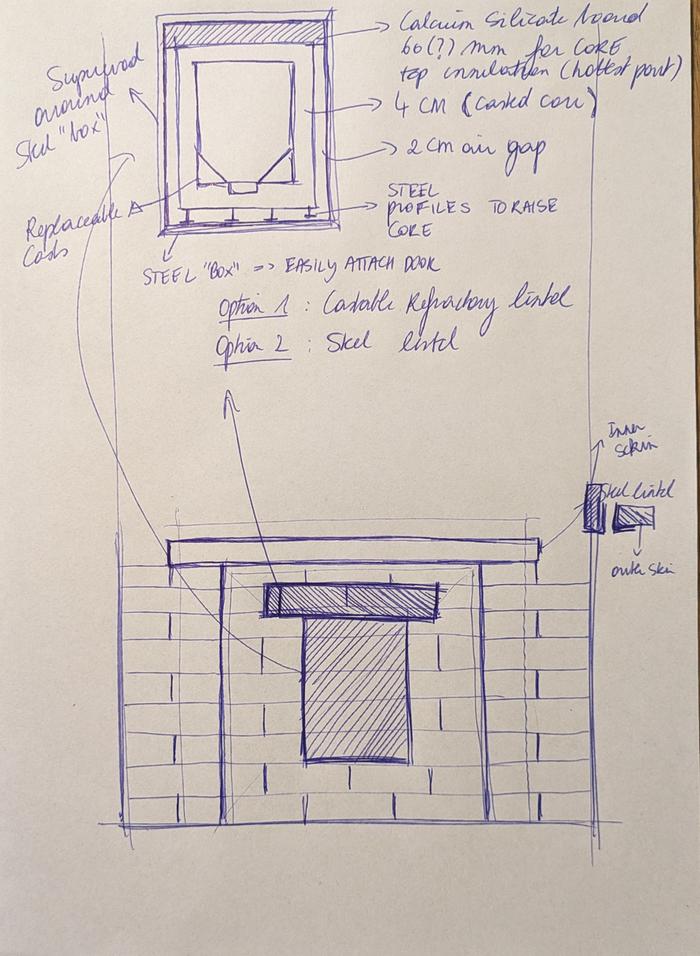 Calcium Silicate board
60(?) mm for CORE
top insulation (hottest point)
4 CM (casted core)
2 cm air gap
STEEL
PROFILES TO RAISE
CORE
Superwool
around
Steel "box"
Replaceable
Casts
STEEL "BOX" => EASILY ATTACH DOOR
Option 1 : Castable Refractory lintel
Option 2 : Steel lintel
Inner
Skin
Steel lintel
outer Skin